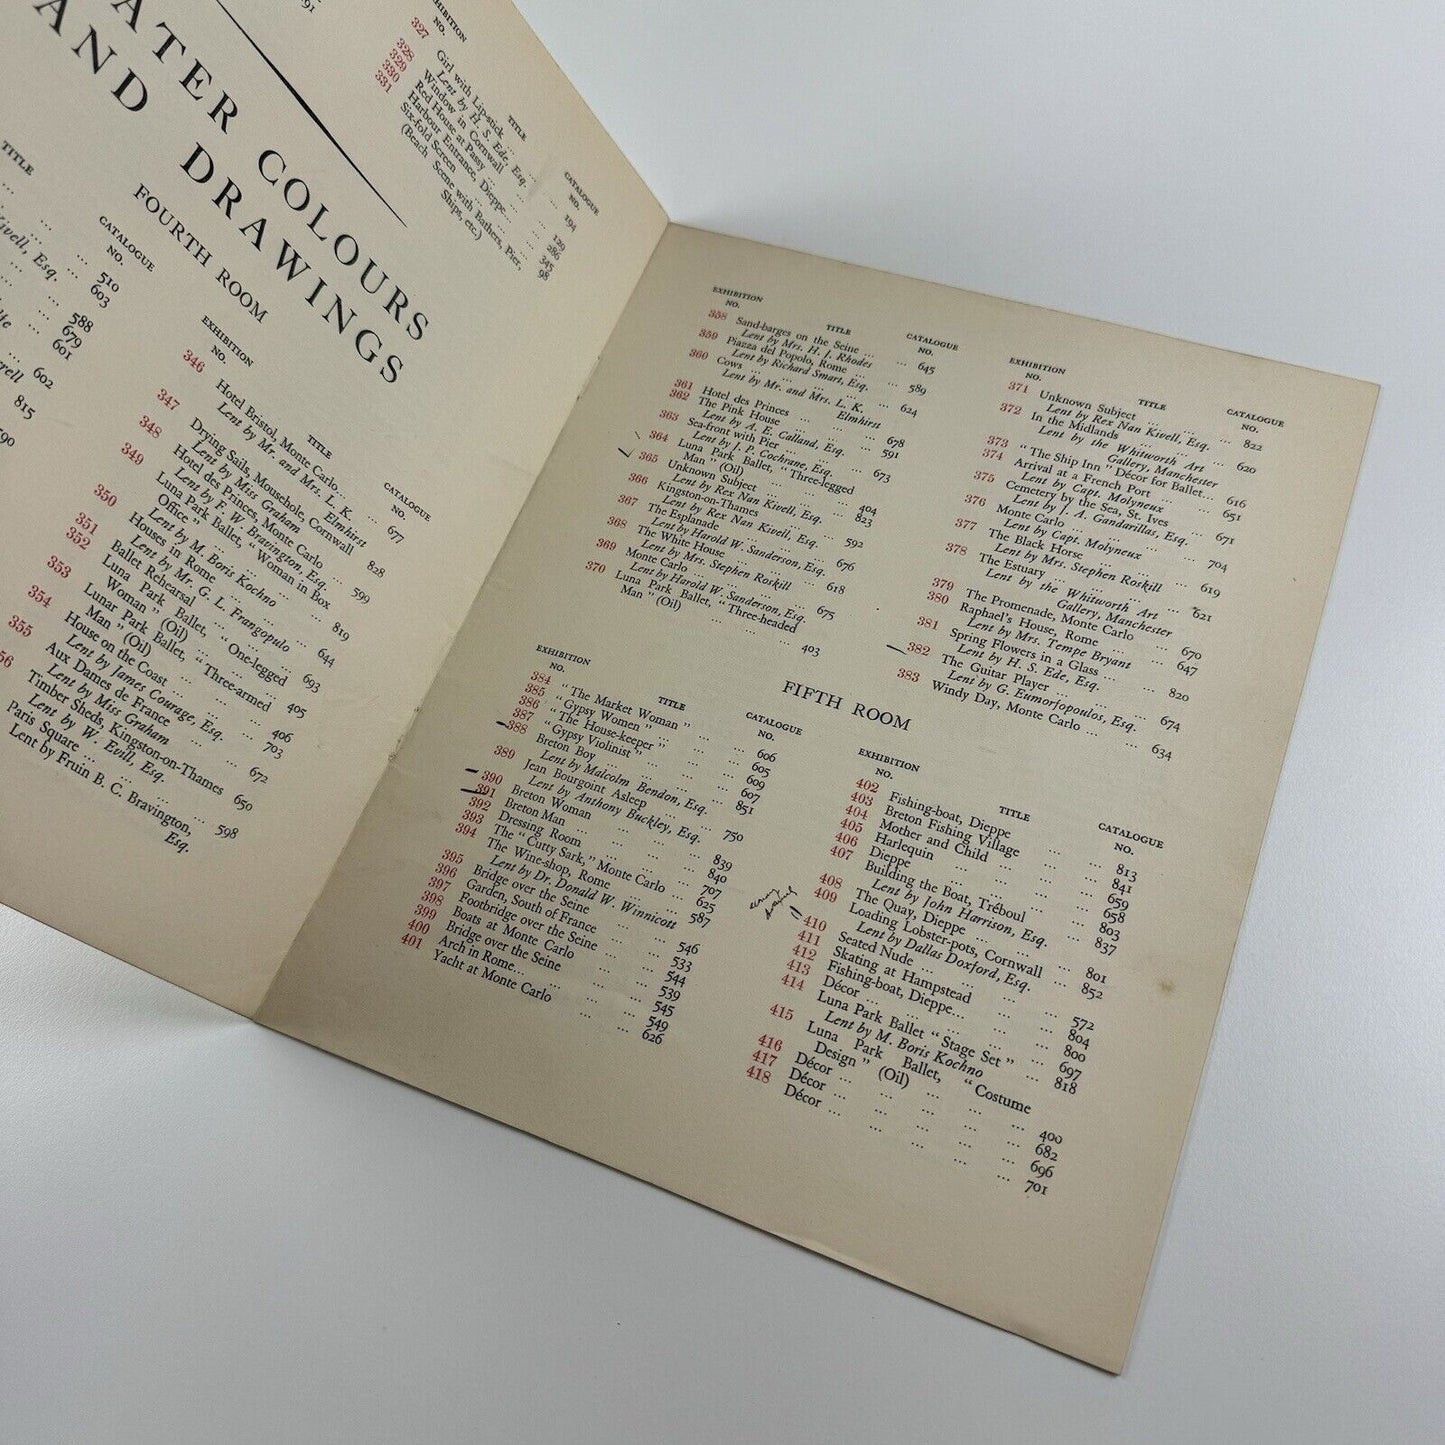 91
ATER COLOURS
AND DRAWINGS
FOURTH ROOM
TITLE
CATALOGUE
NO.
510
Kivell, Esq. ... 603
588
679
601
602
815
590
EXHIBITION
NO.
TITLE
CATALOGUE
NO.
327 Girl with Lip-stick ... 194
Lent by H. S. Ede, Esq.
328 Window in Cornwall ... 129
329 Red House at Passy ... 286
330 Harbour Entrance, Dieppe... 345
331 Six-fold Screen ... 98
(Beach Scene with Bathers, Pier,
Ships, etc.)
EXHIBITION
NO.
TITLE
CATALOGUE
NO.
346 Hotel Bristol, Monte Carlo... 677
Lent by Mr. and Mrs. L. K.
Elmhirst
347 Drying Sails, Mousehole, Cornwall 828
Lent by Miss Graham
348 Hotel des Princes, Monte Carlo ... 599
Lent by F. W. Bravington, Esq.
349 Luna Park Ballet, "Woman in Box
Office" ... 819
Lent by M. Boris Kochno
350 Houses in Rome ... 644
Lent by Mr. G. L. Frangopulo
351 Ballet Rehearsal ... 693
352 Luna Park Ballet, "One-legged
Woman" (Oil) ... 405
353 Lunar Park Ballet, "Three-armed
Man" (Oil) ... 406
354 House on the Coast ... 703
Lent by James Courage, Esq.
355 Aux Dames de France ... 672
Lent by Miss Graham
56 Timber Sheds, Kingston-on-Thames 650
Lent by W. Evill, Esq.
Paris Square ... 598
Lent by Fruin B. C. Bravington,
Esq.
EXHIBITION
NO.
TITLE
CATALOGUE
NO.
358 Sand-barges on the Seine ... 645
Lent by Mrs. H. J. Rhodes
359 Piazza del Popolo, Rome ... 589
Lent by Richard Smart, Esq.
360 Cows ... 624
Lent by Mr. and Mrs. L. K.
Elmhirst
361 Hotel des Princes ... 678
362 The Pink House ... 591
Lent by A. E. Galland, Esq.
363 Sea-front with Pier ... 673
Lent by J. P. Cochrane, Esq.
364 Luna Park Ballet, "Three-legged
Man" (Oil) ... 404
365 Unknown Subject ... 823
Lent by Rex Nan Kivell, Esq.
366 Kingston-on-Thames ... 592
Lent by Rex Nan Kivell, Esq.
367 The Esplanade ... 676
Lent by Harold W. Sanderson, Esq.
368 The White House ... 618
Lent by Mrs. Stephen Roskill
369 Monte Carlo ... 675
Lent by Harold W. Sanderson, Esq.
370 Luna Park Ballet, "Three-headed
Man" (Oil) ... 403
EXHIBITION
NO.
TITLE
CATALOGUE
NO.
371 Unknown Subject ... 822
Lent by Rex Nan Kivell, Esq.
372 In the Midlands ... 620
Lent by the Whitworth Art
Gallery, Manchester
373 "The Ship Inn" Décor for Ballet... 616
374 Arrival at a French Port ... 651
Lent by Capt. Molyneux
375 Cemetery by the Sea, St. Ives ... 671
Lent by J. A. Gandarillas, Esq.
376 Monte Carlo ... 704
Lent by Capt. Molyneux
377 The Black Horse ... 619
Lent by Mrs. Stephen Roskill
378 The Estuary ... 621
Lent by the Whitworth Art
Gallery, Manchester
379 The Promenade, Monte Carlo 670
380 Raphael's House, Rome ... 647
Lent by Mrs. Tempe Bryant
381 Spring Flowers in a Glass ... 820
Lent by H. S. Ede, Esq.
382 The Guitar Player ... 674
Lent by G. Eumorfopoulos, Esq.
383 Windy Day, Monte Carlo ... 634
FIFTH ROOM
EXHIBITION
NO.
TITLE
CATALOGUE
NO.
384 "The Market Woman" ... 606
385 "Gypsy Women" ... 605
386 "The House-keeper" ... 609
387 "Gypsy Violinist" ... 607
388 Breton Boy ... 851
Lent by Malcolm Bendon, Esq.
389 Jean Bourgoint Asleep ... 750
Lent by Anthony Buckley, Esq.
390 Breton Woman ... 839
391 Breton Man ... 840
392 Dressing Room ... 707
393 The "Cutty Sark," Monte Carlo ... 625
394 The Wine-shop, Rome ... 587
Lent by Dr. Donald W. Winnicott
395 Bridge over the Seine ... 546
396 Garden, South of France ... 533
397 Footbridge over the Seine ... 544
398 Boats at Monte Carlo ... 539
399 Bridge over the Seine ... 545
400 Arch in Rome... 549
401 Yacht at Monte Carlo ... 626
EXHIBITION
NO.
TITLE
CATALOGUE
NO.
402 Fishing-boat, Dieppe ... 813
403 Breton Fishing Village ... 841
404 Mother and Child ... 659
405 Harlequin ... 658
406 Dieppe ... 803
407 Building the Boat, Tréboul ... 837
Lent by John Harrison, Esq.
408 The Quay, Dieppe ... 801
409 Loading Lobster-pots, Cornwall 852
Lent by Dallas Doxford, Esq.
410 Seated Nude ... 572
411 Skating at Hampstead ... 804
412 Fishing-boat, Dieppe... 800
413 Décor ... 697
414 Luna Park Ballet "Stage Set" ... 818
Lent by M. Boris Kochno
415 Luna Park Ballet, "Costume
Design" (Oil) ... 400
416 Décor ... 682
417 Décor ... 696
418 Décor ... 701